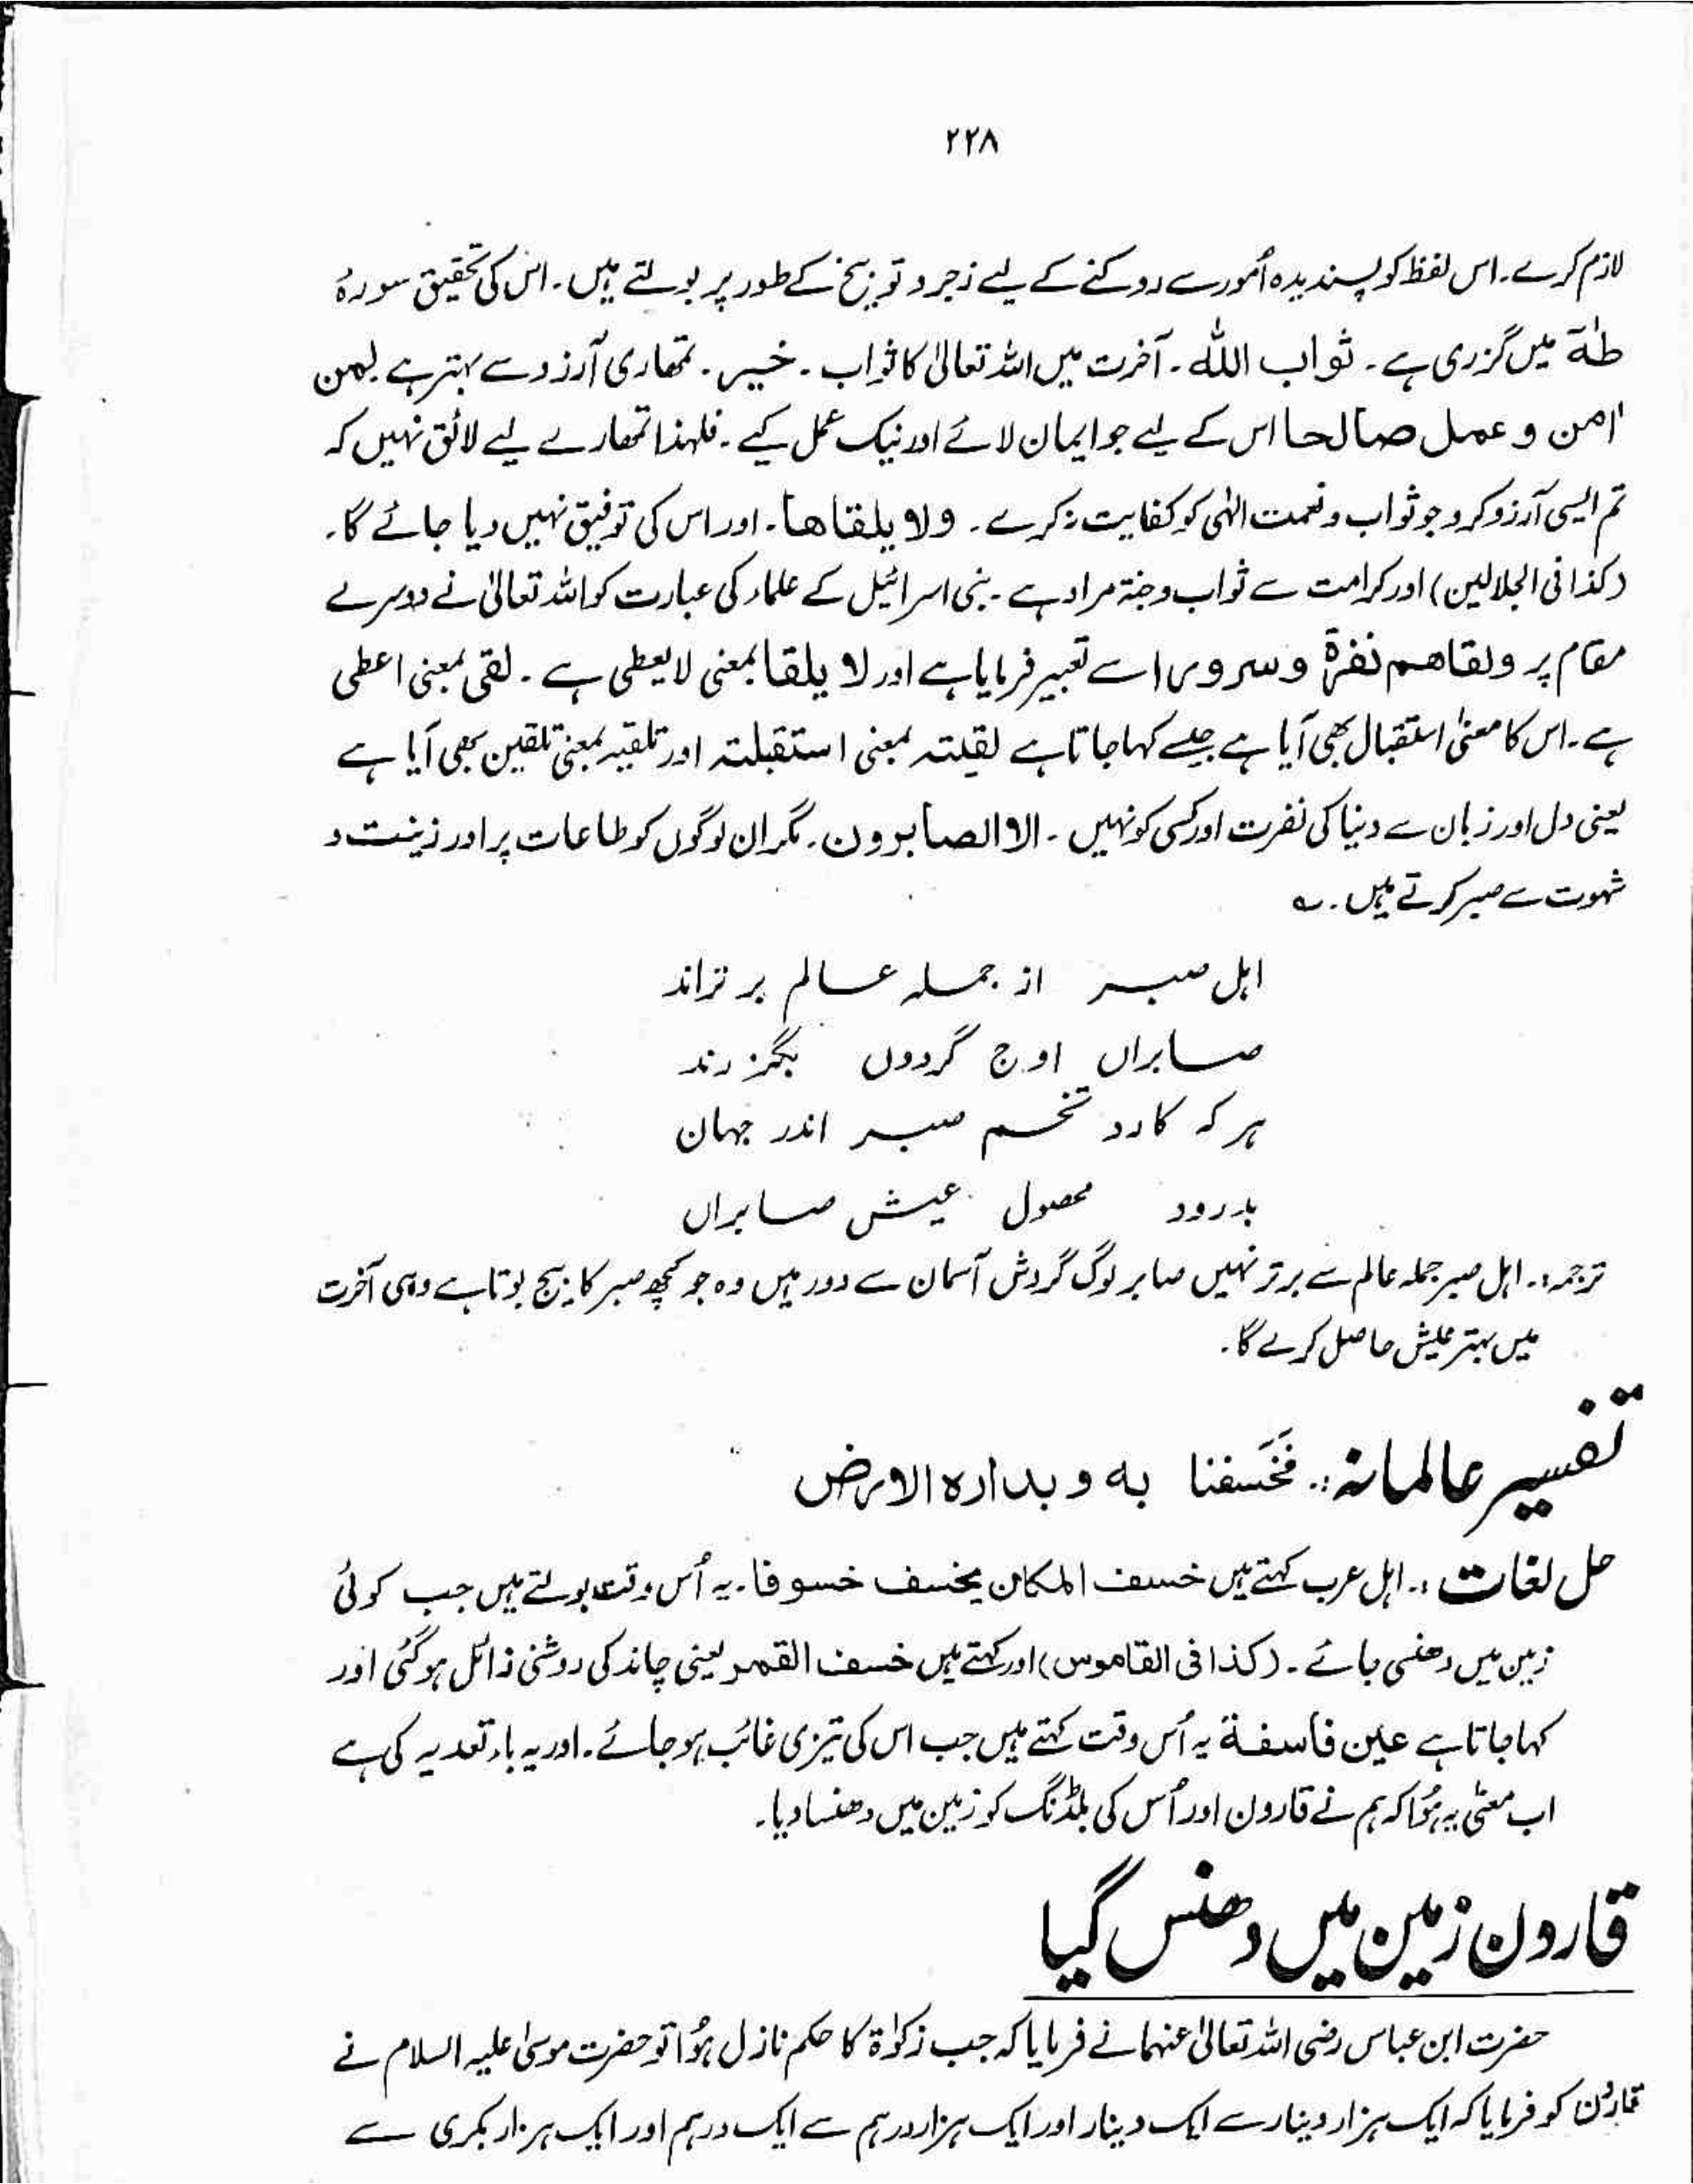 ۲۲۸
لازم کرے۔ اس لفظ کو پسندیدہ اُمور سے روکنے کے لیے زجر و توبیخ کے طور پر بولتے ہیں۔ اس کی تحقیق سورۂ
طٰہٰ میں گزری ہے۔ ثواب اللہ۔ آخرت میں اللہ تعالیٰ کا ثواب۔ خیر۔ تمھاری آرزو سے بہتر ہے لمن
اٰمن و عمل صالحا اس کے لیے جو ایمان لائے اور نیک عمل کیے۔ فلہذا تمھارے لیے لائق نہیں کہ
تم ایسی آرزو کرو جو ثواب و نعمت الٰہی کو کفایت نہ کرے۔ ولا یلقاھا۔ اور اس کی توفیق نہیں دیا جائے گا۔
(کذا فی الجلالین) اور کرامت سے ثواب و جنۃ مراد ہے۔ بنی اسرائیل کے علماء کی عبارت کو اللہ تعالیٰ نے دوسرے
مقام پر ولقاھم نفرۃ و سرورا سے تعبیر فرمایا ہے اور لا یلقا بمعنی لا یعطی ہے۔ لقی بمعنی اعطی
ہے۔ اس کا معنیٰ استقبال بھی آیا ہے جیسے کہا جاتا ہے لقیتہ بمعنی استقبلتہ اور تلقیہ بمعنی تلقین بھی آیا ہے
یعنی دل اور زبان سے دنیا کی نفرت اور کسی کو نہیں۔ الا الصابرون۔ مگر ان لوگوں کو طاعات پر اور زینت و
شہوت سے صبر کرتے ہیں۔ ؎
اہل صبر از جملہ عالم برتراند
صابراں اوج گردوں بگزرند
ہر کہ کارد تخم صبر اندر جہان
بدرود محصول عیش صابراں
ترجمہ:۔ اہل صبر جملہ عالم سے برتر نہیں صابر لوگ گردش آسمان سے دور ہیں وہ جو کچھ صبر کا بیج بوتا ہے وہی آخرت
میں بہتر عیش حاصل کرے گا۔
تفسیر عالمانہ:۔ فَخَسَفنا بہ و بدارہ الارض
حل لغات:۔ اہل عرب کہتے ہیں خسف المکان یخسف خسوفا۔ یہ اُس وقت بولتے ہیں جب کوئی
زمین میں دھنسی جائے۔ (کذا فی القاموس) اور کہتے ہیں خسف القمر یعنی چاند کی روشنی زائل ہو گئی اور
کہا جاتا ہے عین فاسفۃ یہ اُس وقت کہتے ہیں جب اس کی تیزی غائب ہو جائے۔ اور یہ باء تعدیہ کی ہے
اب معنٰی یہ ہُوا کہ ہم نے قارون اور اُس کی بلڈنگ کو زمین میں دھنسا دیا۔
قارون زمین میں دھنس گیا
حضرت ابن عباس رضی اللہ تعالیٰ عنہما نے فرمایا کہ جب زکوٰۃ کا حکم نازل ہُوا تو حضرت موسیٰ علیہ السلام نے
قارُن کو فرمایا کہ ایک ہزار دینار سے ایک دینار اور ایک ہزار درہم سے ایک درہم اور ایک ہزار بکری سے